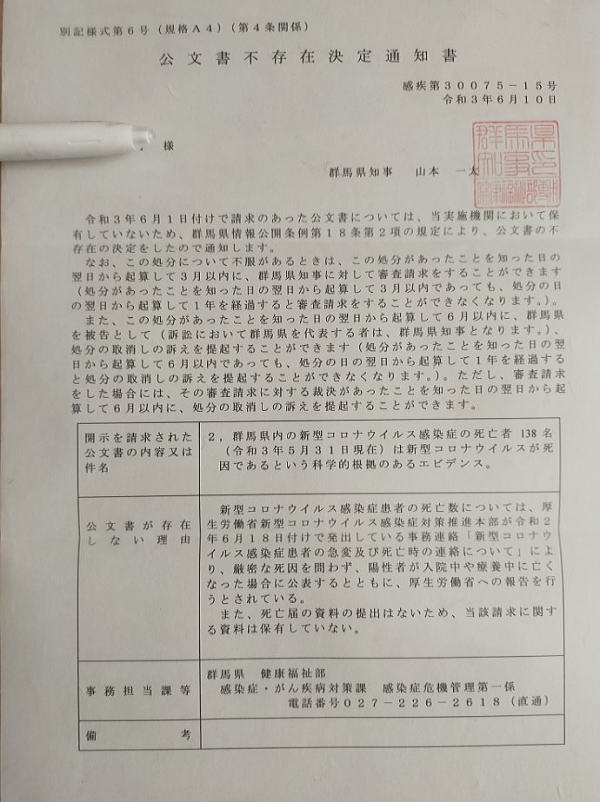 別記様式第6号（規格A4）（第4条関係）
公文書不存在決定通知書
感疾第30075-15号
令和3年6月10日
様
群馬県知事　山本　一太
令和3年6月1日付けで請求のあった公文書については、当実施機関において保
有していないため、群馬県情報公開条例第18条第2項の規定により、公文書の不
存在の決定をしたので通知します。
なお、この処分について不服があるときは、この処分があったことを知った日の
翌日から起算して3月以内に、群馬県知事に対して審査請求をすることができます
（処分があったことを知った日の翌日から起算して3月以内であっても、処分の日
の翌日から起算して1年を経過すると審査請求をすることができなくなります。）。
また、この処分があったことを知った日の翌日から起算して6月以内に、群馬県
を被告として（訴訟において群馬県を代表する者は、群馬県知事となります。）、
処分の取消しの訴えを提起することができます（処分があったことを知った日の翌
日から起算して6月以内であっても、処分の日の翌日から起算して1年を経過する
と処分の取消しの訴えを提起することができなくなります。）。ただし、審査請求
をした場合には、その審査請求に対する裁決があったことを知った日の翌日から起
算して6月以内に、処分の取消しの訴えを提起することができます。
開示を請求された
公文書の内容又は
件名
2，群馬県内の新型コロナウイルス感染症の死亡者 138名
（令和3年5月31日現在）は新型コロナウイルスが死
因であるという科学的根拠のあるエビデンス。
公文書が存在
しない理由
新型コロナウイルス感染症患者の死亡数については、厚
生労働省新型コロナウイルス感染症対策推進本部が令和2
年6月18日付けで発出している事務連絡「新型コロナウ
イルス感染症患者の急変及び死亡時の連絡について」によ
り、厳密な死因を問わず、陽性者が入院中や療養中に亡く
なった場合に公表するとともに、厚生労働省への報告を行
うとされている。
また、死亡届の資料の提出はないため、当該請求に関す
る資料は保有していない。
事務担当課等
群馬県　健康福祉部
感染症・がん疾病対策課　感染症危機管理第一係
電話番号027-226-2618（直通）
備　考